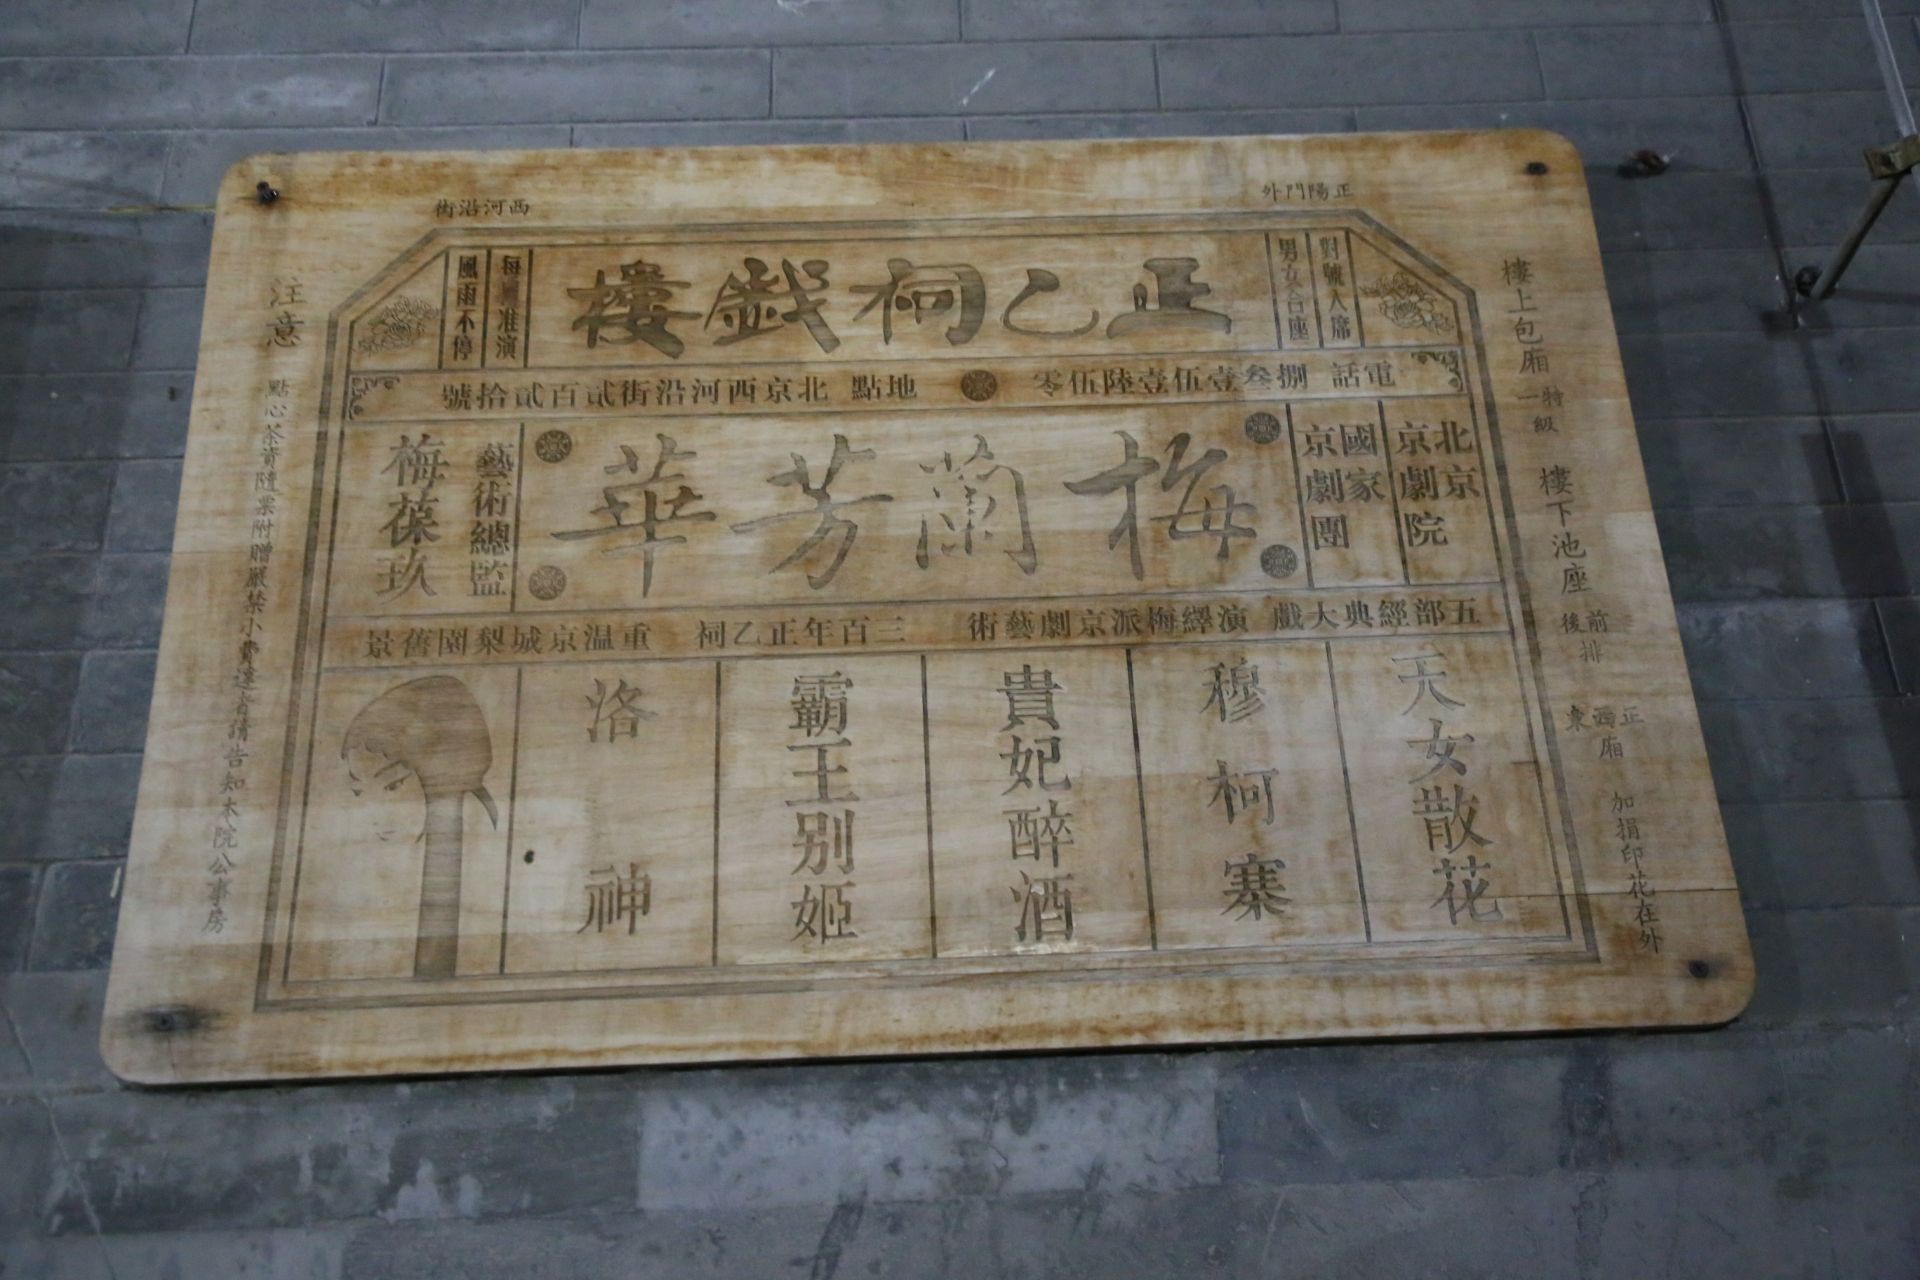 正陽門外
西河沿街
對號入席
男女合座
正乙祠戯樓
風雨不停
電話 捌叁壹伍壹陸伍零
地點 北京西河沿街貳百貳拾號
北京京劇院
國家京劇團
梅蘭芳華
藝術總監
梅葆玖
五部經典大戲 演繹梅派京劇藝術
三百年正乙祠 重温京城梨園舊景
天女散花
穆柯寨
貴妃醉酒
霸王别姬
洛神
樓上包廂 特級一
樓下池座 前後排
正西東廂
加捐印花在外
注意
點心茶資隨票附贈嚴禁小費違者請告知本院公事房